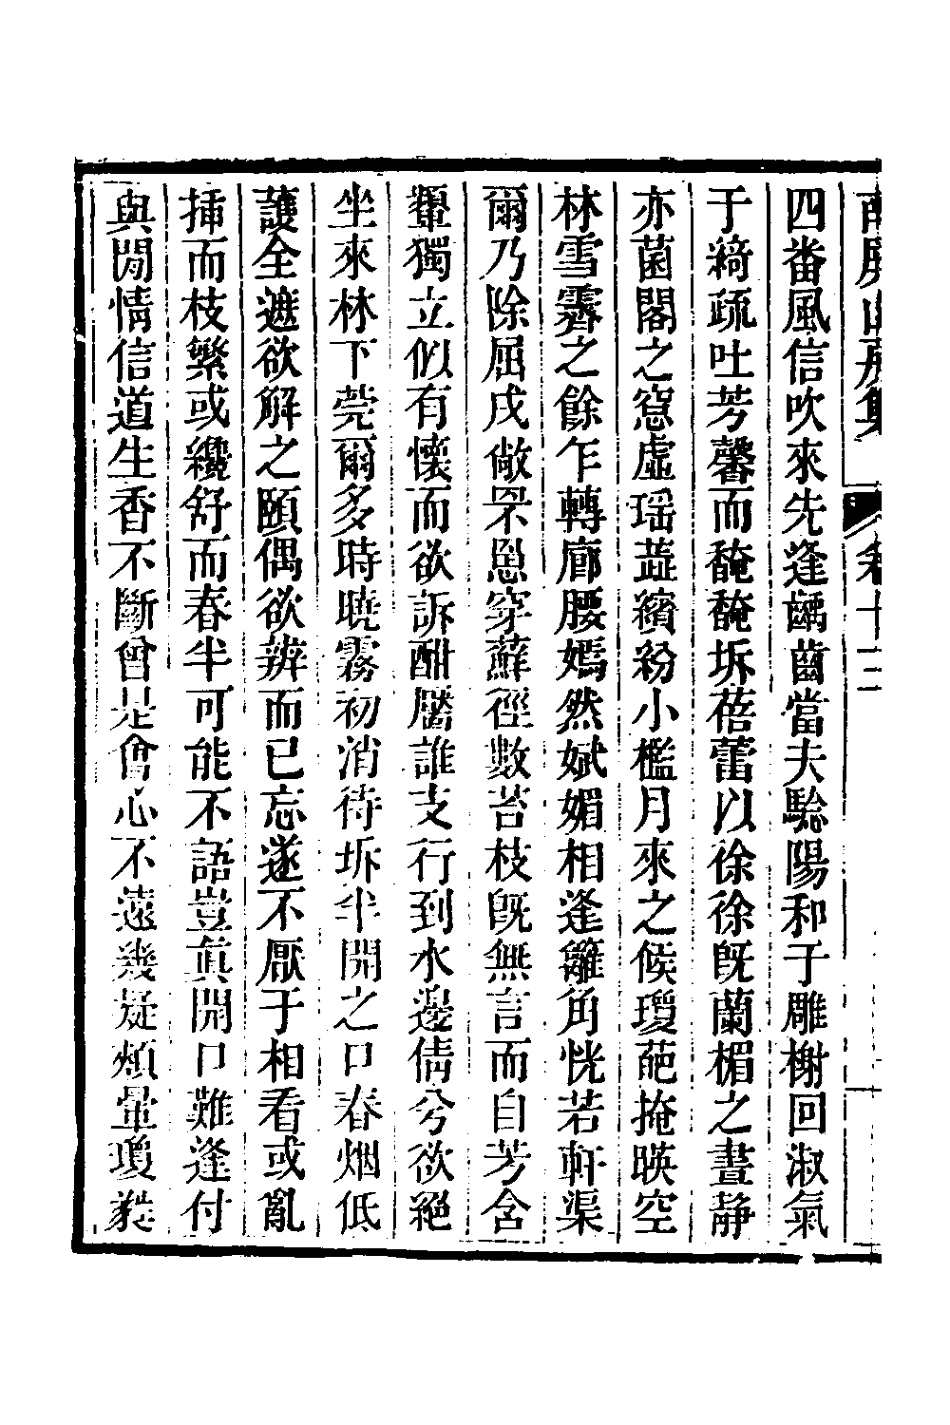 南屏山房集 卷十二
四番風信吹來先逢齲齒當夫驗陽和子雕榭回淑氣
于綺疏吐芳馨而馣馣坼蓓蕾以徐徐旣蘭楣之晝靜
亦菌閣之窓虛瑶蕋繽紛小檻月來之候瓊葩掩暎空
林雪霽之餘乍轉廊腰嫣然斌媚相逢籬角恍若軒渠
爾乃除屈戌敞罘罳穿蘚徑數苔枝旣無言而自芳含
顰獨立似有懷而欲訴酣靨誰支行到水邊倩兮欲絕
坐來林下莞爾多時曉霧初消待坼半開之口春烟低
護全遮欲解之頤偶欲辨而已忘遂不厭于相看或亂
揷而枝繁或纔舒而春半可能不語豈眞開口難逢付
與閒情信道生香不斷曾是會心不遠幾疑頰暈瓊蕤